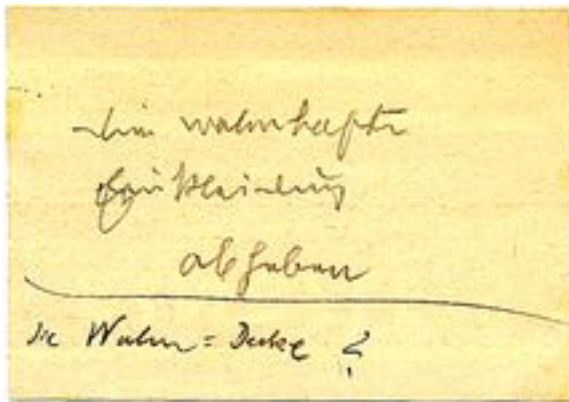 die wahnhafte
Einkleidung
abgeben
die Wahn=Decke ?